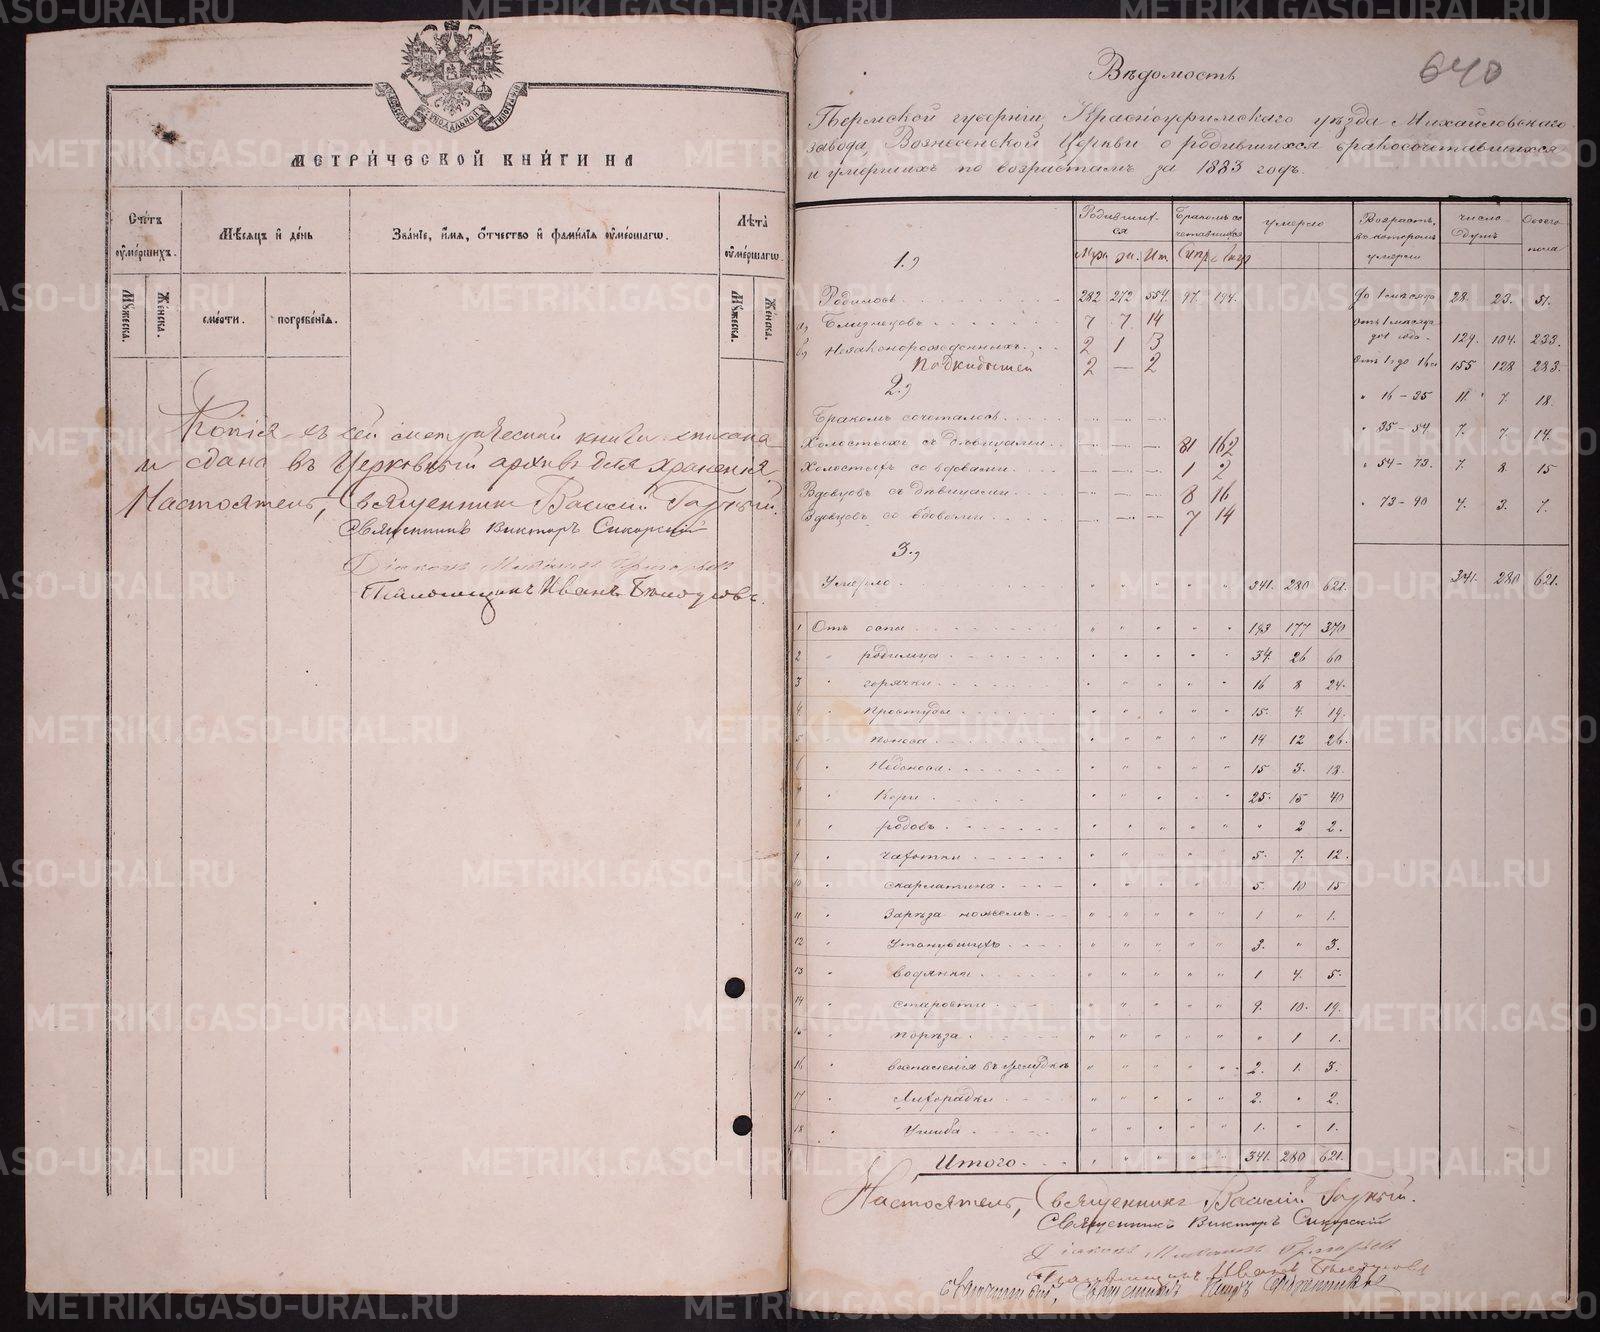 МЕТРИ́ЧЕСКОЙ КНИ́ГИ НА
Сче́тъ ᲂу҆ме́ршихъ.
Мѣ́сяцъ й де́нь
Зва́нїе, и҆́мя, ѻ҆́тчество й фами́лїя ᲂу҆ме́ршагѡ.
Лѣта̀ ᲂу҆ме́ршагѡ.
Мꙋ́жеска.
Же́нска.
сме́рти.
погребе́нїя.
Мꙋ́жеска.
Же́нска.
Копія съ сей метрической книги списана
и сдана въ Церковный архивъ для храненія
Настоятель, Священникъ Василій
Священникъ Викторъ Сикорскій
Діаконъ Григорьев
Псаломщикъ Иванъ
640
Вѣдомость
Пермской губерніи, Красноуфимскаго уѣзда Михайловскаго
завода, Вознесенской Церкви о родившихся бракосочетавшихся
и умершихъ по возрастамъ за 1883 годъ.
Родивши- ся
Бракомъ со четавшихся
умерло
Возрастъ, въ которомъ умерли
число душъ
Обоего пола
1.)
Родилось 282 272 554 97 194 до 1 мѣсяца 28. 23. 51.
а, Близнецовъ 7 7 14 отъ 1 мѣсяца до 1 года 129. 104. 233.
б, Незаконорожденныхъ 2 1 3
Подкидышей 2 — 2 отъ 1 до 16 155 128 283.
2.)
" 16 – 35 11. 7. 18.
Бракомъ сочеталось
Холостыхъ съ дѣвицами 81 162 " 35 – 54. 7. 7. 14.
Холостыхъ со вдовами 1 2 " 54 – 73. 7. 8. 15
Вдовцовъ съ дѣвицами 8 16
Вдовцовъ со вдовами 7 14 " 73 – 90 4. 3. 7.
3.)
Умерло 341. 280 621. 341. 280 621.
1 Отъ оспы 193 177 370
2 " родимца 34. 26 60
3 " горячки 16 8 24.
4 " простуды 15. 4. 19.
5 " поноса 14 12 26.
6 " Недоноса 15 3. 18.
7 " Кори 25. 15 40
8 " родовъ " 2 2.
9 " чахотки 5. 7. 12.
10 " скарлатина 5. 10 15
11 " Зарѣза ножемъ 1 " 1.
12 " Утонувшихъ 3. " 3.
13 " водянки 1 4. 5.
14 " старости 9. 10. 19.
15 " порѣза " 1 1.
16 " воспаленія въ желудкѣ 2. 1. 3.
17 " Лихорадки 2. " 2.
18 " Ушиба 1. " 1.
Итого 341. 280 621.
Настоятель, Священникъ Василій
Священникъ Викторъ Сикорскій
Діаконъ Григорьев
Псаломщикъ Иванъ
METRIKI.GASO-URAL.RU